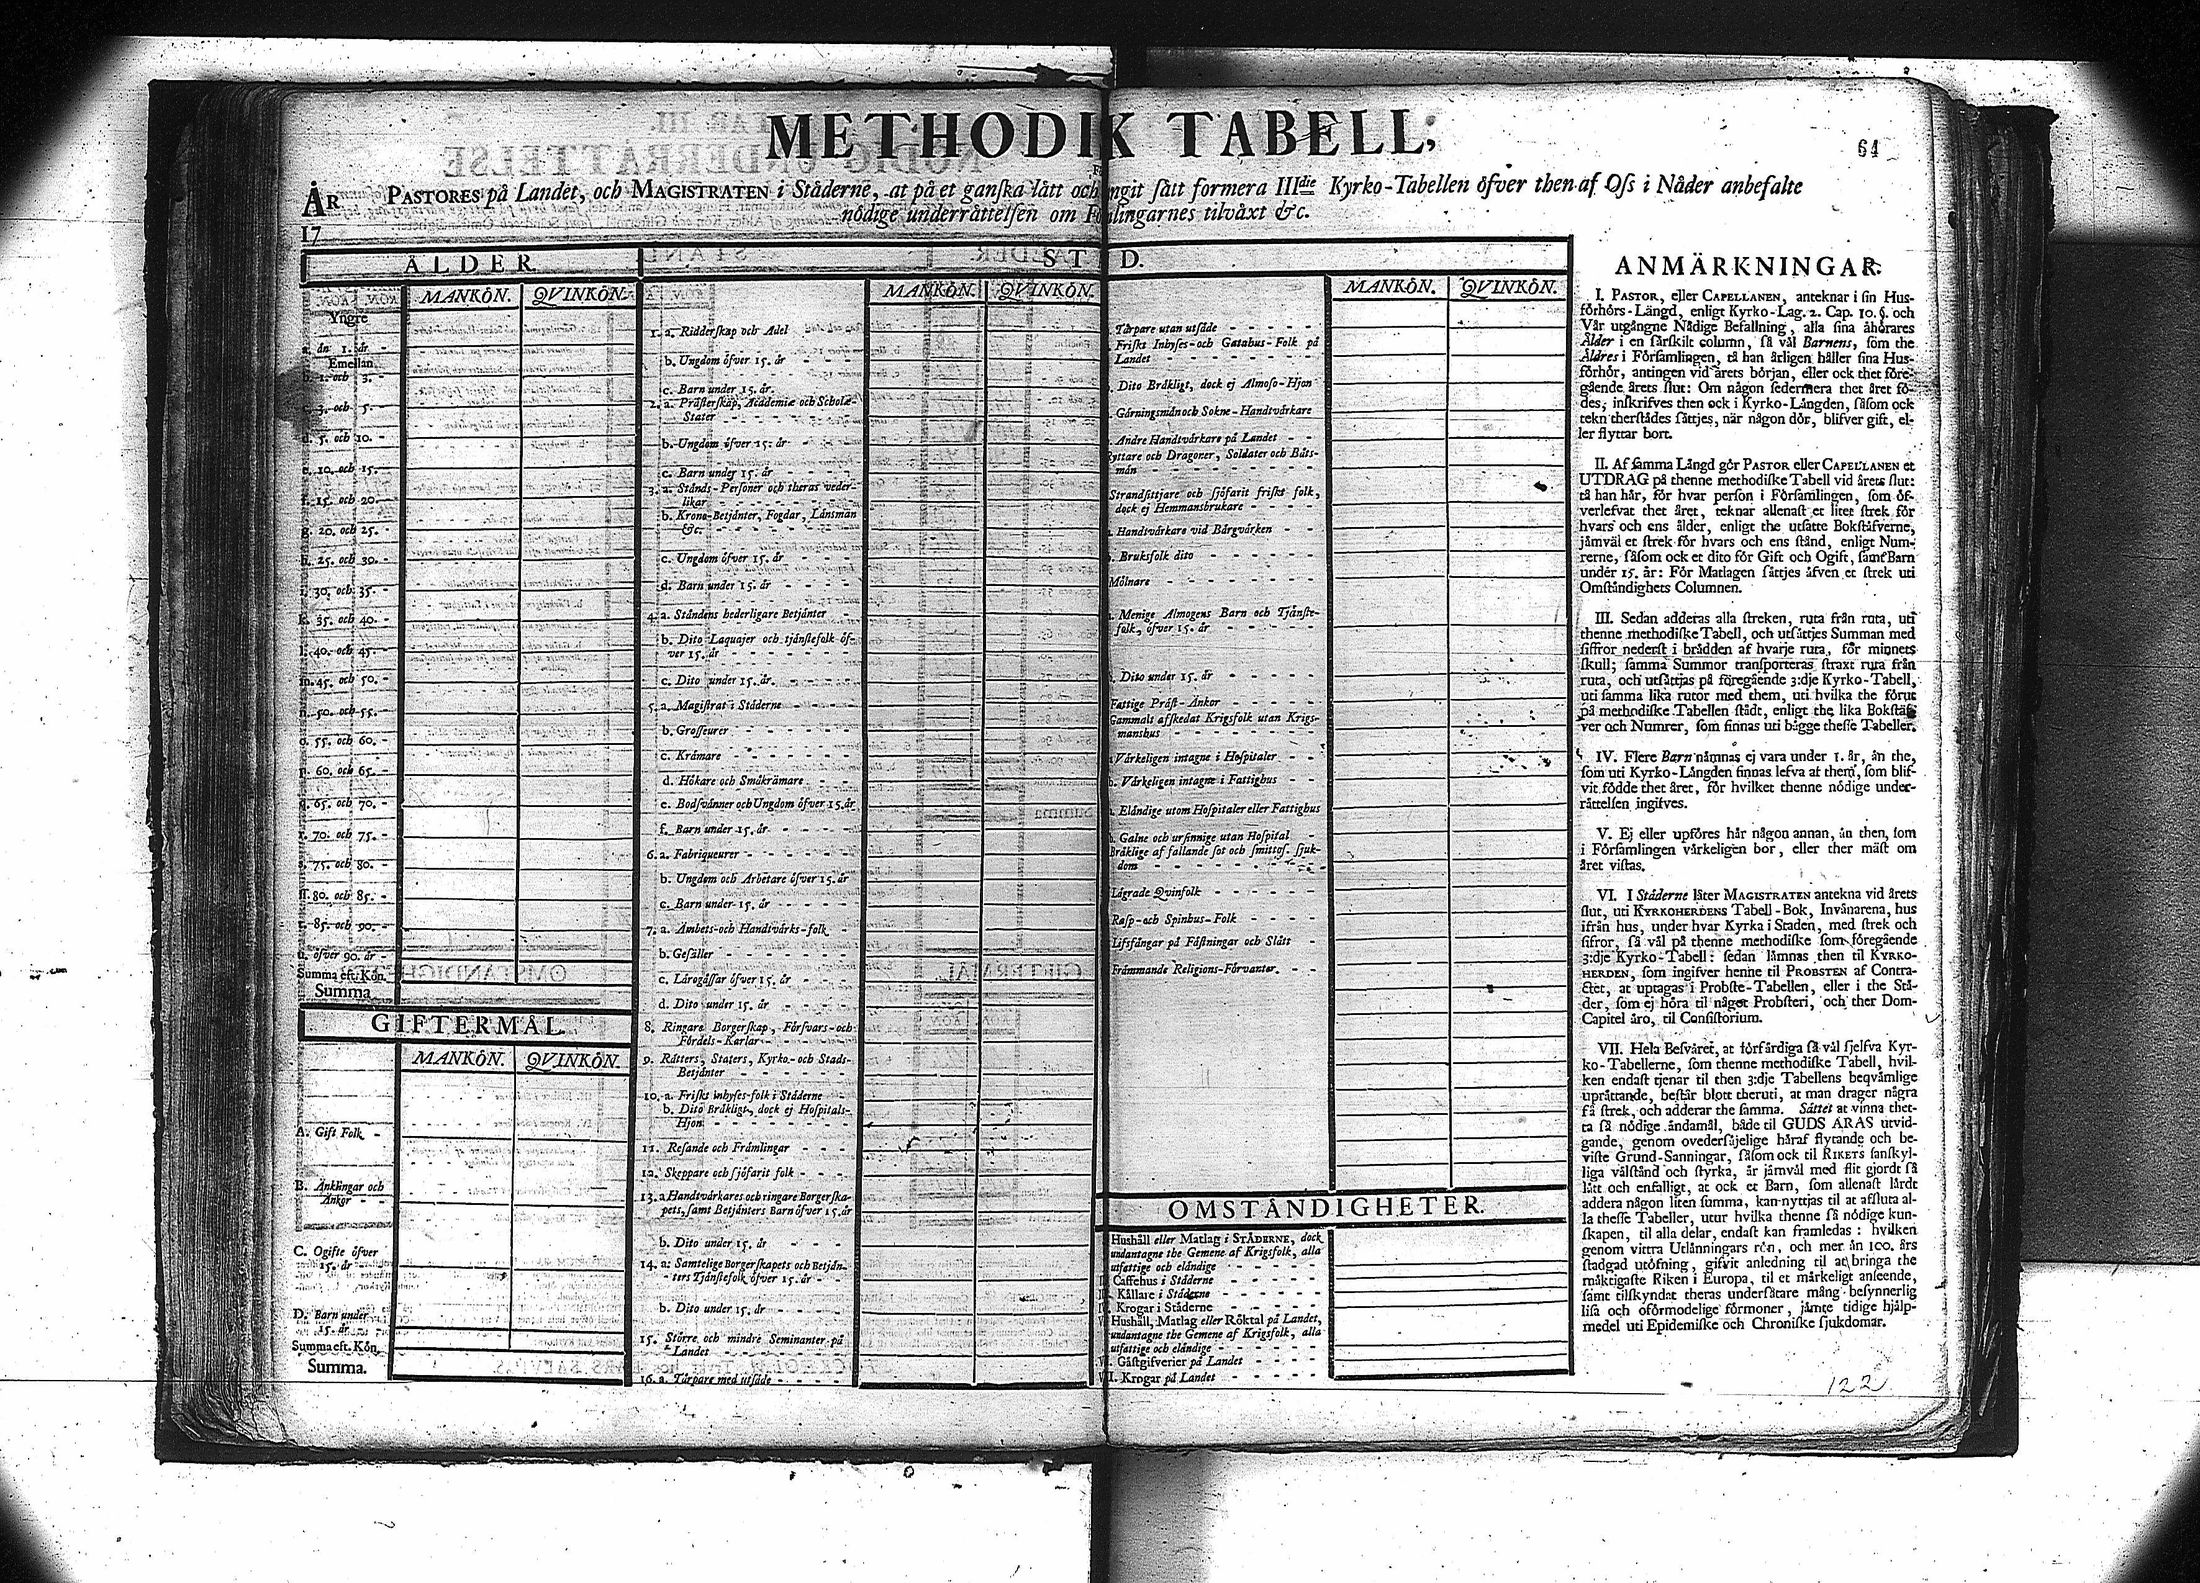 METHODIK TABELL,
64
ÅR
17
PASTORES på Landet, och MAGISTRATEN i Städerne, at på et ganska lätt och ringit sätt formera IIIdie Kyrko-Tabellen öfver then af Oss i Nåder anbefalte
nödige underrättelsen om Församlingarnes tilväxt &c.
ÅLDER
MANKÖN. QVINKÖN.
Yngre
a. än 1. år.
Emellan
b. 1. och 3.
c. 3. och 5.
d. 5. och 10.
e. 10. och 15.
f. 15. och 20.
g. 20. och 25.
h. 25. och 30.
i. 30. och 35.
k. 35. och 40.
l. 40. och 45.
m. 45. och 50.
n. 50. och 55.
o. 55. och 60.
p. 60. och 65.
q. 65. och 70.
r. 70. och 75.
s. 75. och 80.
ss. 80. och 85.
t. 85. och 90.
u. öfver 90. år
Summa eft. Kön.
Summa
GIFTERMÅL.
MANKÖN. QVINKÖN.
A. Gift Folk
B. Änklingar och
Änkor
C. Ogifte öfver
15. år
D. Barn under
15. år
Summa eft. Kön.
Summa.
ST D.
MANKÖN. QVINKÖN.
1. a. Ridderskap och Adel
b. Ungdom öfver 15. år
c. Barn under 15. år.
2. a. Prästerskap, Academiæ och Scholæ-
Stater
b. Ungdom öfver 15. år
c. Barn under 15. år
3. a. Stånds-Personer och theras veder-
likar
b. Krono-Betjänter, Fogdar, Länsmän
&c.
c. Ungdom öfver 15. år
d. Barn under 15. år
4. a. Ståndens hederligare Betjänter
b. Dito Laquajer och tjänstefolk öf-
ver 15. år
c. Dito under 15. år.
5. a. Magistrat i Städerne
b. Grosseurer
c. Krämare
d. Hökare och Småkrämare
e. Bodsvänner och Ungdom öfver 15. år
f. Barn under 15. år
6. a. Fabriqueurer
b. Ungdom och Arbetare öfver 15. år
c. Barn under 15. år
7. a. Ämbets-och Handtvärks-folk
b. Gesäller
c. Lärogåssar öfver 15. år
d. Dito under 15. år
8. Ringare Borgerskap, Försvars-och
Fördels-Karlar
9. Rätters, Staters, Kyrko-och Stads-
Betjänter
10. a. Friskt inhyses-folk i Städerne
b. Dito Bräkligt, dock ej Hospitals-
Hjon
11. Resande och Främlingar
12. Skeppare och sjöfarit folk
13. a. Handtvärkares och ringare Borgerska-
pets, samt Betjänters Barn öfver 15. år
b. Dito under 15. år
14. a. Samtelige Borgerskapets och Betjän-
ters Tjänstefolk öfver 15. år
b. Dito under 15. år
15. Större och mindre Seminanter på
Landet
16. a. Torpare med utsäde
MANKÖN. QVINKÖN.
Torpare utan utsäde
Friskt Inhyses-och Gatahus-Folk på
Landet
Dito Bräkligt, dock ej Almoso-Hjon
Gärningsmän och Sokne-Handtvärkare
Andre Handtvärkare på Landet
Ryttare och Dragoner, Soldater och Båts-
män
Strandsittjare och sjöfarit friskt folk,
dock ej Hemmansbrukare
Handtvärkare vid Bärgvärken
Bruksfolk dito
Mölnare
Menige Almogens Barn och Tjänste-
folk, öfver 15. år
Dito under 15. år
Fattige Präst-Änkor
Gammalt afskedat Krigsfolk utan Krigs-
manshus
Värkeligen intagne i Hospitaler
b. Värkeligen intagne i Fattighus
Eländige utom Hospitaler eller Fattighus
Galne och ursinnige utan Hospital
Bräklige af fallande sot och smittos. sjuk-
dom
Lägrade Qvinfolk
Rasp-och Spinhus-Folk
Lifsfångar på Fästningar och Slått
Främmande Religions-Förvanter.
OMSTÄNDIGHETER.
Hushåll eller Matlag i STÄDERNE, dock
undantagne the Gemene af Krigsfolk, alla
utfattige och eländige
Caffehus i Städerne
Källare i Städerne
Krogar i Städerne
Hushåll, Matlag eller Röktal på Landet,
undantagne the Gemene af Krigsfolk, alla
utfattige och eländige
Gästgifverier på Landet
Krogar på Landet
ANMÄRKNINGAR.
I. PASTOR, eller CAPELLANEN, anteknar i sin Hus-
förhörs-Längd, enligt Kyrko-Lag. 2. Cap. 10. §. och
Vår utgångne Nådige Befallning, alla sina åhörares
Ålder i en särskilt column, så väl Barnens, som the
Äldres i Församlingen, tå han årligen håller sina Hus-
förhör, antingen vid årets början, eller ock thet före-
gående årets slut: Om någon sedermera thet året fö-
des, inskrifves then ock i Kyrko-Längden, såsom ock
tekn therstädes sättjes, när någon dör, blifver gift, el-
ler flyttar bort.
II. Af samma Längd gör PASTOR eller CAPELLANEN et
UTDRAG på thenne methodiske Tabell vid årets slut:
tå han här, för hvar person i Församlingen, som öf-
verlefvat thet året, teknar allenast et litet strek för
hvars och ens ålder, enligt the utsatte Bokstäfverne,
jämväl et strek för hvars och ens stånd, enligt Num-
rerne, såsom ock et dito för Gift och Ogift, samt Barn
under 15. år: För Matlagen sättjes äfven et strek uti
Omständighets Columnen.
III. Sedan adderas alla streken, ruta från ruta, uti
thenne methodiske Tabell, och utsättjes Summan med
siffror nederst i brädden af hvarje ruta, för minnets
skull; samma Summor transporteras straxt ruta från
ruta, och utsättjas på föregående 3:dje Kyrko-Tabell,
uti samma lika rutor med them, uti hvilka the förut
på methodiske Tabellen stådt, enligt the lika Bokstäf-
ver och Numrer, som finnas uti bägge thesse Tabeller.
IV. Flere Barn nämnas ej vara under 1. år, än the,
som uti Kyrko-Längden finnas lefva af them, som blif-
vit födde thet året, för hvilket thenne nödige under-
rättelsen ingifves.
V. Ej eller upföres här någon annan, än then, som
i Församlingen värkeligen bor, eller ther mäst om
året vistas.
VI. I Städerne låter MAGISTRATEN antekna vid årets
slut, uti KYRKOHERDENS Tabell-Bok, Invånarena, hus
ifrån hus, under hvar Kyrka i Staden, med strek och
sifror, så väl på thenne methodiske som föregående
3:dje Kyrko-Tabell: sedan lämnas then til KYRKO-
HERDEN, som ingifver henne til PROBSTEN af Contra-
ctet, at uptagas i Probste-Tabellen, eller i the Stä-
der, som ej höra til något Probsteri, och ther Dom-
Capitel äro, til Consistorium.
VII. Hela Besväret, at förfärdiga så väl sjelfva Kyr-
ko-Tabellerne, som thenne methodiske Tabell, hvil-
ken endast tjenar til then 3:dje Tabellens beqvämlige
uprättande, består blott theruti, at man drager några
få strek, och adderar the samma. Sättet at vinna thet-
ta så nödige ändamål, både til GUDS ÄRAS utvid-
gande, genom ovedersäjelige häraf flytande och be-
viste Grund-Sanningar, såsom ock til RIKETS sanskyl-
liga välstånd och styrka, är jämväl med flit gjordt så
lätt och enfalligt, at ock et Barn, som allenast lärdt
addera någon liten summa, kan nyttjas til at afsluta al-
la thesse Tabeller, utur hvilka thenne så nödige kun-
skapen, til alla delar, endast kan framledas: hvilken
genom vittra Utlänningars rön, och mer än 100. års
stadgad utöfning, gifvit anledning til at bringa the
mäktigaste Riken i Europa, til et märkeligt anseende,
samt tilskyndat theras undersåtare mång besynnerlig
lisa och oförmodelige förmoner, jämte tidige hjälp-
medel uti Epidemiske och Chroniske sjukdomar.
122